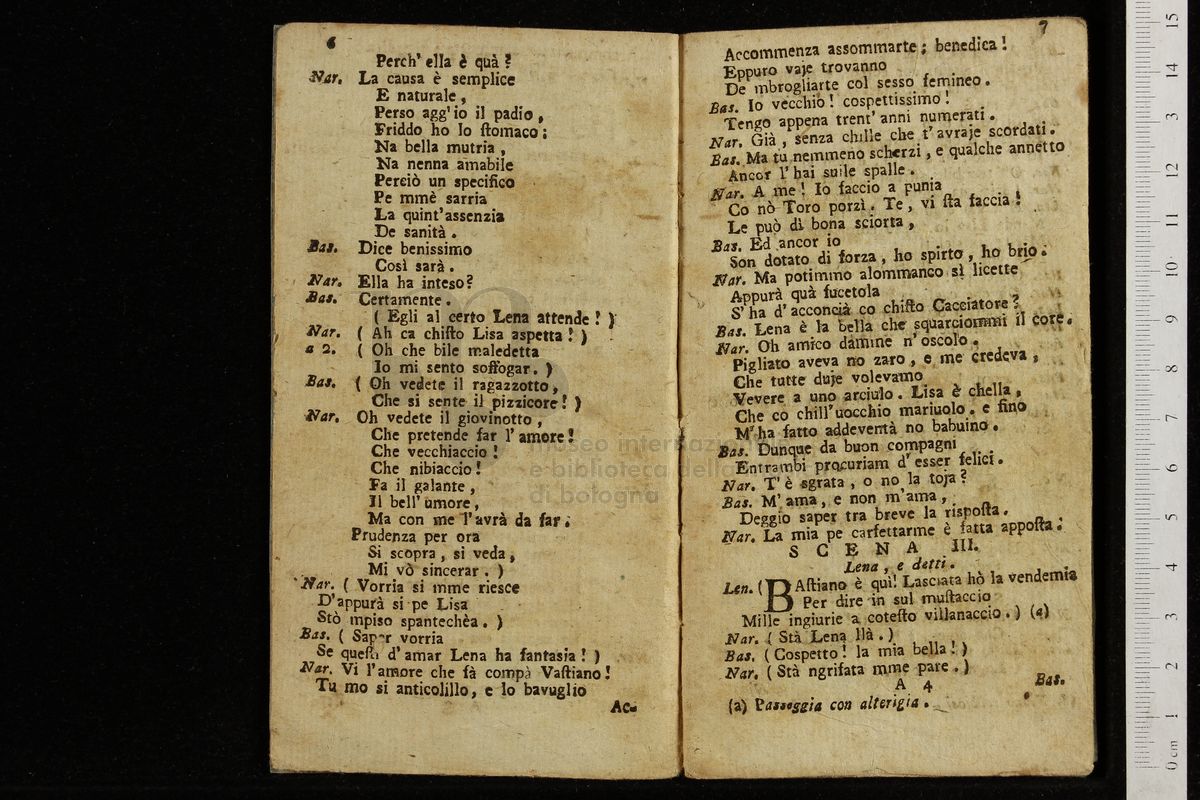 6
Perch' ella è quà ?
Nar. La causa è semplice
E naturale ,
Perso agg' io il padio ,
Friddo ho lo ſtomaco ;
Na bella mutria ,
Na nenna amabile
Perciò un specifico
Pe mmè sarria
La quint' assenzia
De sanità .
Bas. Dice benissimo
Così sarà .
Nar. Ella ha inteso ?
Bas. Certamente .
( Egli al certo Lena attende ! )
Nar. ( Ah ca chiſto Lisa aspetta ! )
a 2. ( Oh che bile maledetta
Io mi sento soffogar . )
Bas. ( Oh vedete il ragazzotto ,
Che si sente il pizzicore ! )
Nar. Oh vedete il giovinotto ,
Che pretende far l' amore !
Che vecchiaccio !
Che nibiaccio !
Fa il galante ,
Il bell' umore ,
Ma con me l' avrà da far .
Prudenza per ora
Si scopra , si veda ,
Mi vò sincerar . )
Nar. ( Vorria si mme riesce
D' appurà si pe Lisa
Stò mpiso spantechèa . )
Bas. ( Saper vorria
Se queſti d' amar Lena ha fantasia ! )
Nar. Vi l' amore che fà compà Vaſtiano !
Tu mo si anticolillo , e lo bavuglio
Ac-
7
Accommenza assommarte ; benedica !
Eppuro vaje trovanno
De mbrogliarte col sesso femineo .
Bas. Io vecchio ! cospettissimo !
Tengo appena trent' anni numerati .
Nar. Già , senza chille che t' avraje scordati .
Bas. Ma tu nemmeno scherzi , e qualche annetto
Ancor l' hai sulle spalle .
Nar. A me ! Io faccio a punia
Co nò Toro porzì . Te , vi ſta faccia !
Le può dì bona sciorta ,
Bas. Ed ancor io
Son dotato di forza , ho spirto , ho brio .
Nar. Ma potimmo alommanco sì licette
Appurà quà fucetola
S' ha d' acconcià co chiſto Cacciatore ?
Bas. Lena è la bella che squarciommi il core .
Nar. Oh amico damine n' oscolo .
Pigliato aveva no zaro , e me credeva ,
Che tutte duje volevamo
Vevere a uno arciulo . Lisa è chella ,
Che co chill' uocchio mariuolo . e fino
M' ha fatto addeventà no babuino .
Bas. Dunque da buon compagni
Entrambi procuriam d' esser felici .
Nar. T' è sgrata , o no la toja ?
Bas. M' ama , e non m' ama ,
Deggio saper tra breve la rispoſta .
Nar. La mia pe carfettarme è fatta appoſta .
SCENA III.
Lena , e detti .
Len. ( BAſtiano è qui ! Lasciata hò la vendemia
Per dire in sul muſtaccio
Mille ingiurie a coteſto villanaccio . ) (a)
Nar. ( Stà Lena llà . )
Bas. ( Cospetto ! la mia bella ! )
Nar. ( Stà ngrifata mme pare . )
A 4
Bas.
(a) Passeggia con alterigia .
museo internazionale
e biblioteca della
di bologna
0 cm 1 2 3 4 5 6 7 8 9 10 11 12 3 14 15